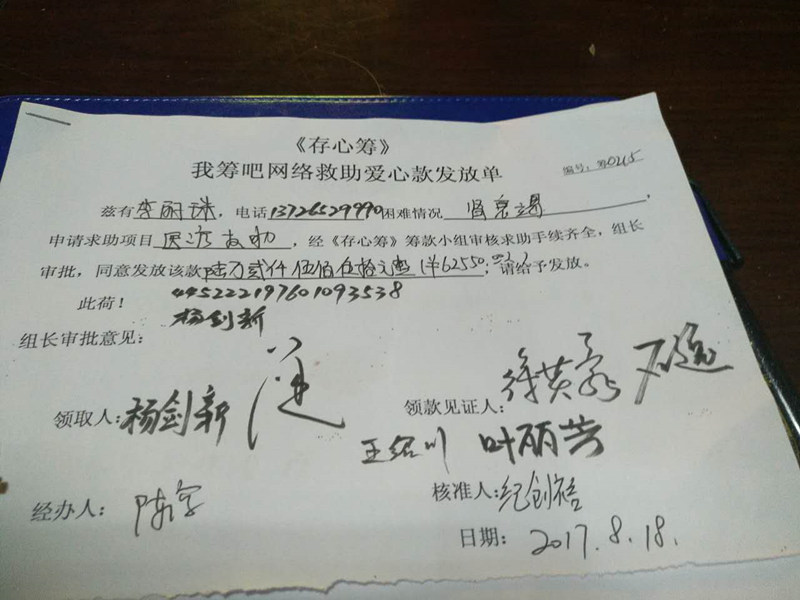 《存心筹》
我筹吧网络救助爱心款发放单
编号：筹0245
兹有李丽珠，电话13726529990困难情况 肾衰竭，
申请求助项目医疗救助，经《存心筹》筹款小组审核求助手续齐全，组长
审批，同意发放该款陆万贰仟伍佰伍拾元整（¥62550，请给予发放。
此荷！
445222197601093538
杨剑新
组长审批意见：
领取人：杨剑新
领款见证人：
王绍川 叶丽芳
经办人：
核准人：纪创
日期：2017.8.18.